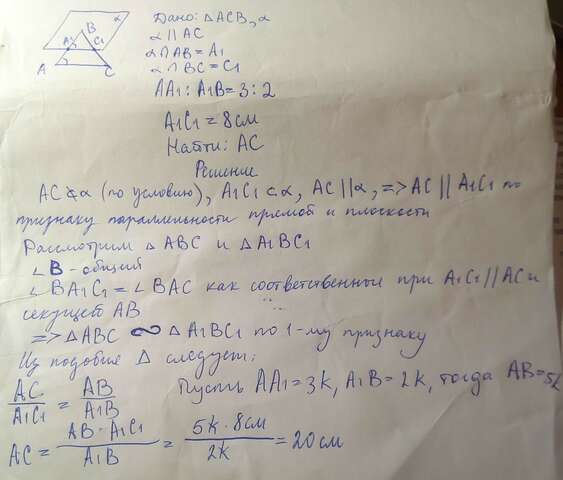 α
B
A₁
C₁
A
C
Дано: △ACB, α
α || AC
α ∩ AB = A₁
α ∩ BC = C₁
AA₁ : A₁B = 3 : 2
A₁C₁ = 8 см
Найти: AC
Решение
AC ⊄ α (по условию), A₁C₁ ⊂ α, AC || α, => AC || A₁C₁ по
признаку параллельности прямой и плоскости
Рассмотрим △ ABC и △ A₁BC₁
∠ B - общий
∠ BA₁C₁ = ∠ BAC как соответственные при A₁C₁ || AC и
секущей AB
=> △ ABC ∞ △ A₁BC₁ по 1-му признаку
Из подобие △ следует:
AC/A₁C₁ = AB/A₁B Пусть AA₁ = 3k, A₁B = 2k, тогда AB = 5k
AC = AB · A₁C₁/A₁B = 5k · 8 см/2k = 20 см